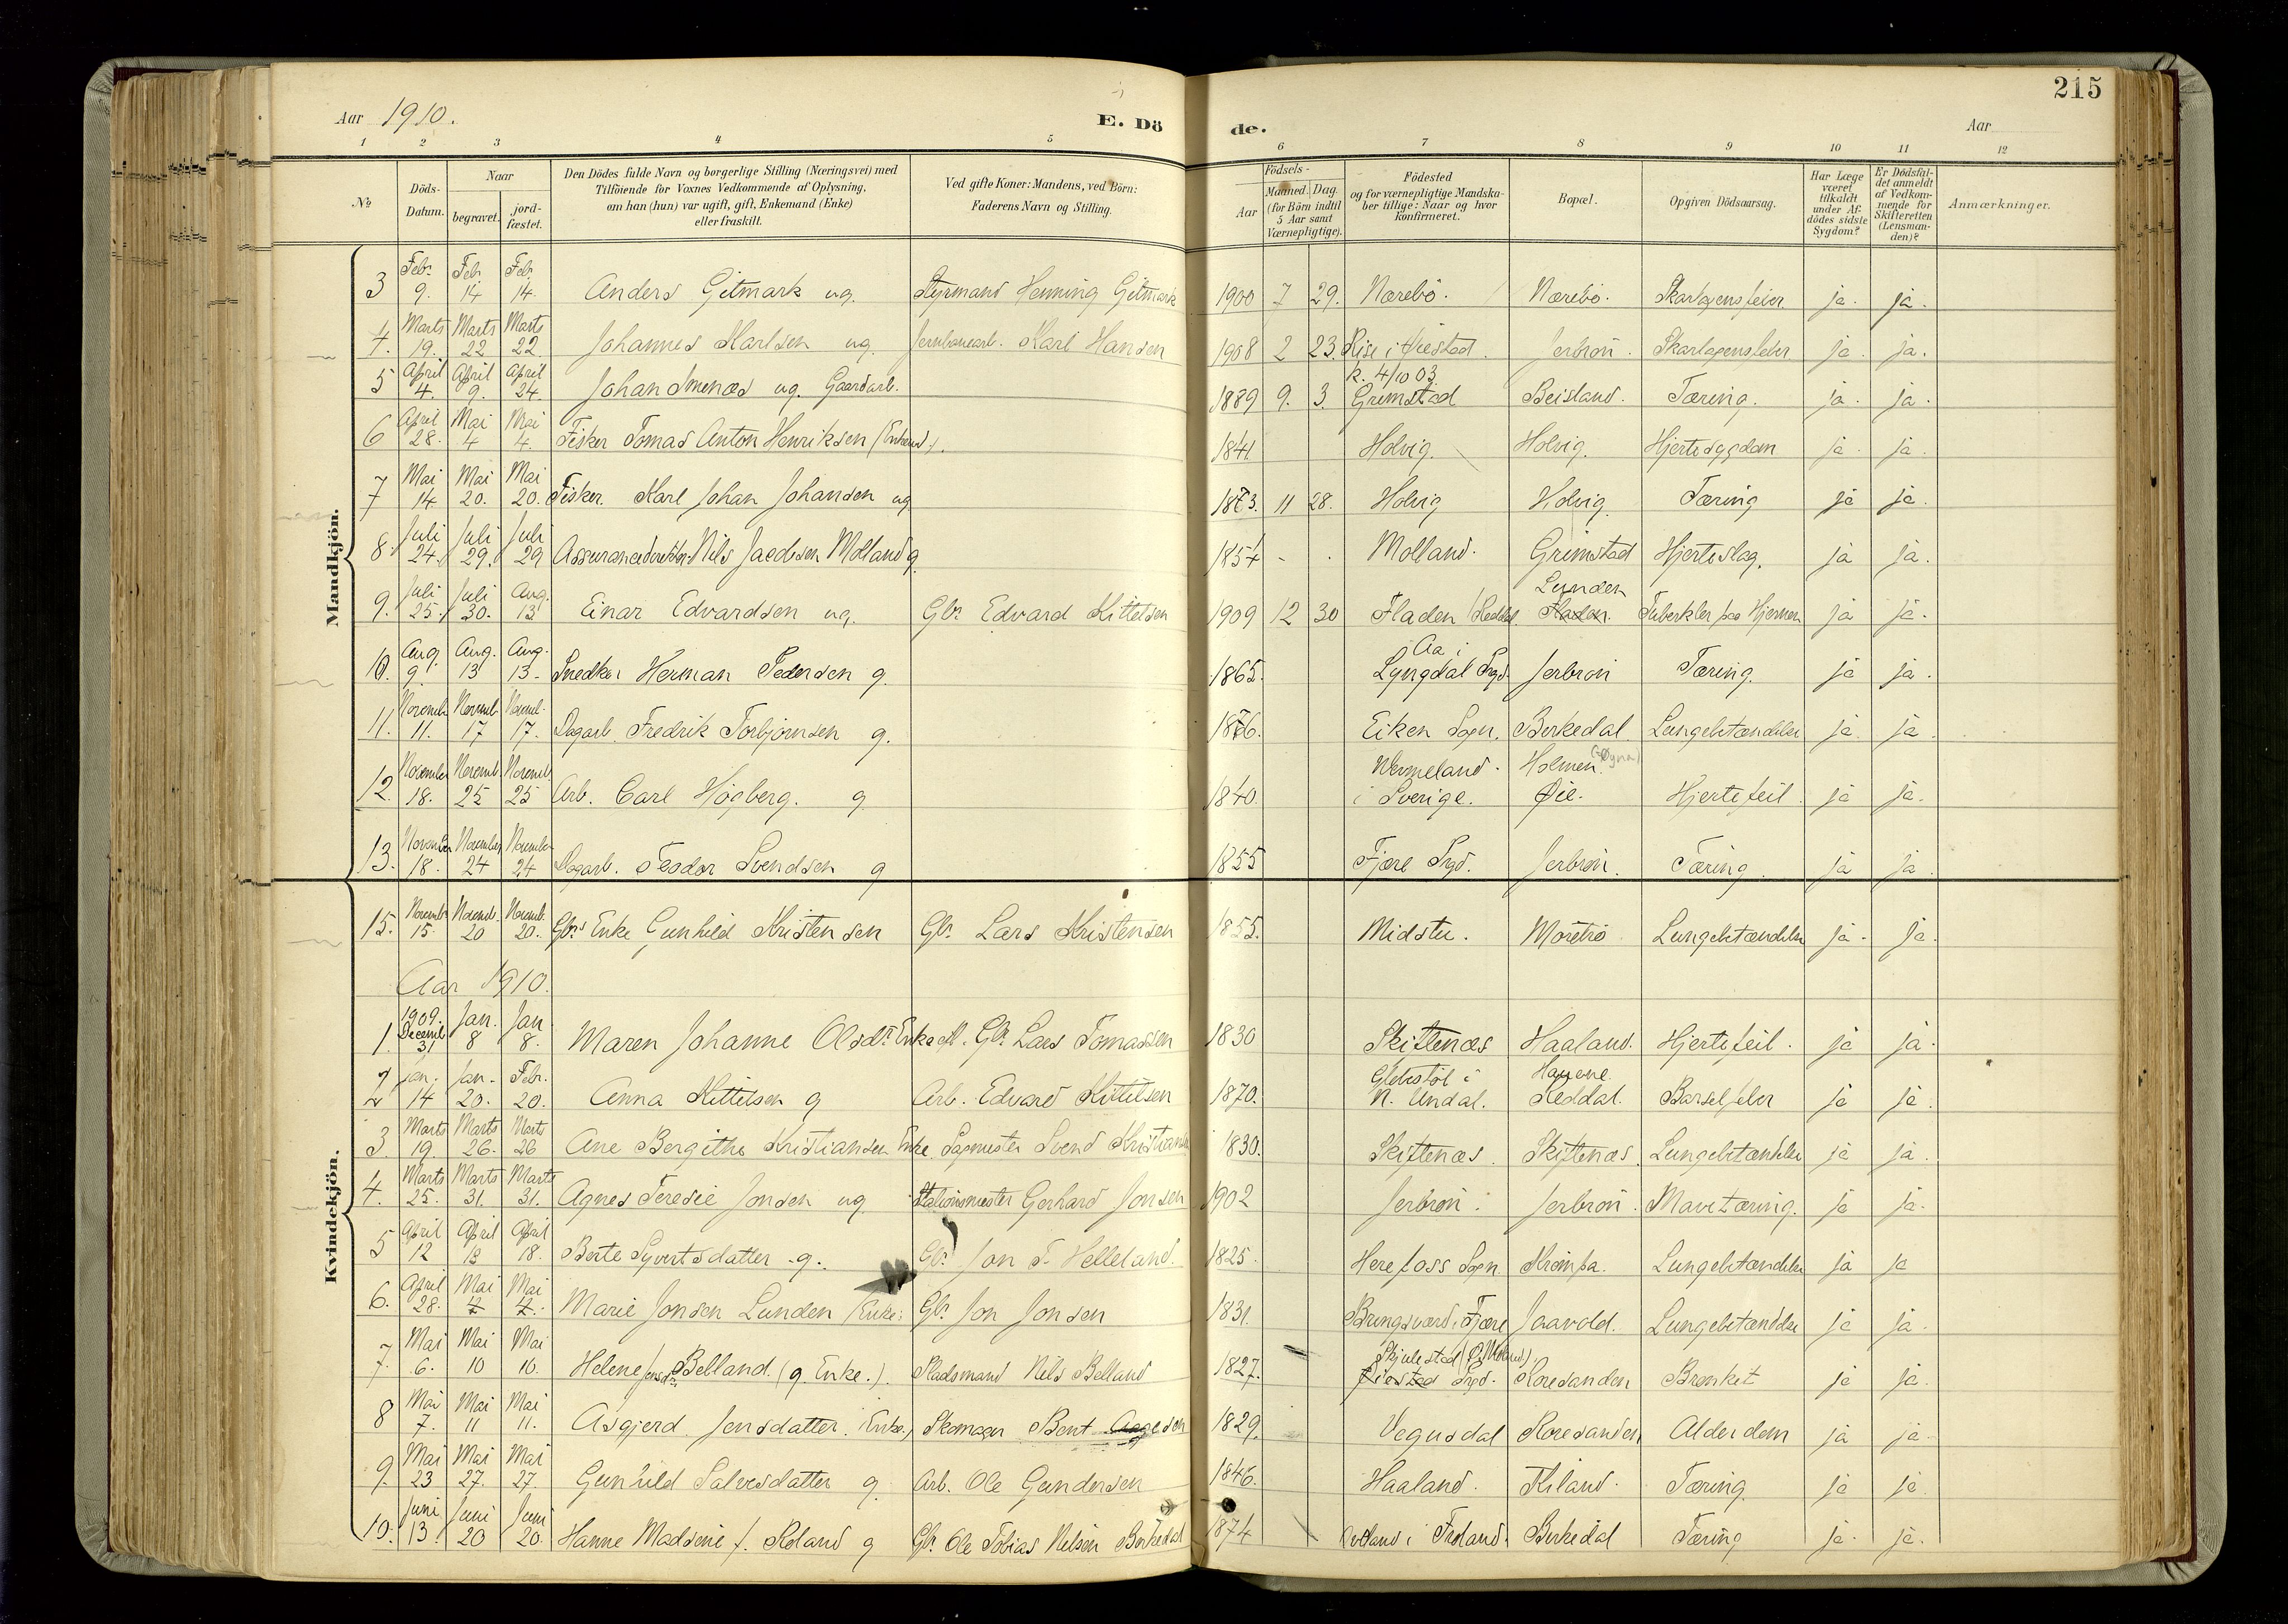 215
Aar 1910.
E. Dö
de.
Aar
1 2 3 4 5 6 7 8 9 10 11 12
No
Döds-Datum.
Naar
begravet.
jord-fæstet.
Den Dödes fulde Navn og borgerlige Stilling (Næringsvei) med
Tilföiende for Voxnes Vedkommende af Oplysning,
om han (hun) var ugift, gift, Enkemand (Enke)
eller fraskilt.
Ved gifte Koner: Mandens, ved Börn:
Faderens Navn og Stilling.
Födsels-
Aar
Maaned. Dag.
(for Börn indtil
5 Aar samt
Værnepligtige).
Födested
og for værnepligtige Mandska-
ber tillige: Naar og hvor
konfirmeret.
Bopæl.
Opgiven Dödsaarsag.
Har Læge
været
tilkaldt
under Af-
dödes sidste
Sygdom?
Er Dödsfal-
det anmeldt
af Vedkom-
mende for
Skifteretten
(Lensman-
den)?
Anmærkninger.
Mandkjön.
3 Febr. 9. Feb. 14 Feb. 14. Anders Gitmark ug. Styrmand Henning Gitmark 1900 7 29. Nærebö. Nærebö. Skarlagensfeber ja. ja.
4. Marts 19. Marts 22 Marts 22. Johannes Karlsen ug. Jernbanearb. Karl Hansen 1908 2 23. Rise i Øiestad. Jerbron. Skarlagensfeber ja. ja.
5 April 4. April 9. April 24. Johan Smenæs ug. Gaardarb. 1889 9. 3. k. 4/10 03. Grimstad Beisland. Tæring. ja. ja.
6 April 28. Mai 4 Mai 4. Fisker Tomas Anton Henriksen (Enkem.). 1841 Holvig. Holvig. Hjertesygdom ja. ja.
7 Mai 14 Mai 20. Mai 20. Fisker Karl Johan Johansen ug 1873. 11 28. Holvig Holvig. Tæring ja ja.
8. Juli 24. Juli 29. Juli 29 Assurancedirektør Nils Jacobsen Molland g. 1854 - . Molland. Grimstad Hjerteslag. ja ja.
9. Juli 25. Juli 30. Aug. 13 Einar Edvardsen ug. Gbr. Edvard Kittelsen 1909 12 30 Fladen (Reddal. Lunden Fladen. Tuberkler paa Hjernen ja ja.
10. Aug. 9. Aug. 13 Aug. 13. Snedker Herman Pedersen g. 1865. Aa i Lyngdal Prgd. Jerbron Tæring. ja ja.
11. Novemb. 11. Novemb. 17 Novemb. 17. Dagarb. Fredrik Torbjørnsen g. 1876. Eiken Sogn. Birkedal. Lungebetændelse ja. ja
12. November 18. Novemb. 25 Novemb. 25 Arb. Carl Högberg. g 1840. Wermeland i Sverige. Holmen. Øie. Hjertefeil. ja ja.
13. November 18. November 24 November 24 Dagarb. Teodor Svendsen g 1855 Fjære Prgd. Jerbron. Tæring. ja ja
Kvindekjön.
15. Novemb. 15. Novemb. 20 Novemb. 20. Gbrs Enke Gunhild Kristensen Gbr. Lars Kristensen 1855. Midstu. Moretrö Lungebetændelse ja. ja.
Aar 1910.
1. 1909. Decemb. 31 Jan. 8 Jan 8. Maren Johanne Olsdtr. Enke efl. Gbr. Lars Tomassen 1830 Skiftenæs Haaland. Hjertefeil. ja ja.
2 Jan. 14 Jan. 20. Febr. 20. Anna Kittilsen g Arb. Edvard Kittilsen 1870. i N. Undal. Haugene Reddal. Barselfeber ja ja.
3. Marts 19. Marts 26. Marts 26 Ane Bergithe Kristiansen Enke. Sagmester Svend Kristiansen 1830. Skiftenæs. Skiftenæs. Lungebetændelse ja ja.
4. Marts 25. Marts 31. Marts 31. Agnes Teresie Jonsen ug Stationsmester Gerhard Jonsen 1902 Jerbron. Jerbron. Mavetæring. ja ja.
5 April 12 April 18 April 18. Berte Syvertsdatter g. Gbr. Jon T. Helleland. 1825. Herefoss Sogn. Krompa. Lungebetændelse ja ja
6. April 28. Mai 4 Mai 4. Marie Jonsen Lunden (Enke) Gbr. Jon Jonsen 1831. Bringsværd i Fjære Jaavold. Lungebetændelse ja ja.
7. Mai 6. Mai 10 Mai 10. Helene Jensdtr. Belland. (g. Enke.). Pladsmand Nils Belland 1827. Skjulestad (Ø. Moland). Øiestad Prgd. Roresanden Brønkit ja ja.
8 Mai 7. Mai 11 Mai 11. Asgjerd Jensdatter. (Enke.) Skomager Bent Aagesen 1829. Vegusdal Roresanden Alderdom ja ja.
9. Mai 23 Mai 27. Mai 27. Gunhild Salvesdatter g. Arb. Ole Gundersen 1846. Haaland. Kiland. Tæring. ja ja.
10. Juni 13. Juni 20 Juni 20. Hanne Madsine f. Roland g Gbr. Ole Tobias Nilsen Birkedal 1874 i Froland. Birkedal Tæring ja. ja.